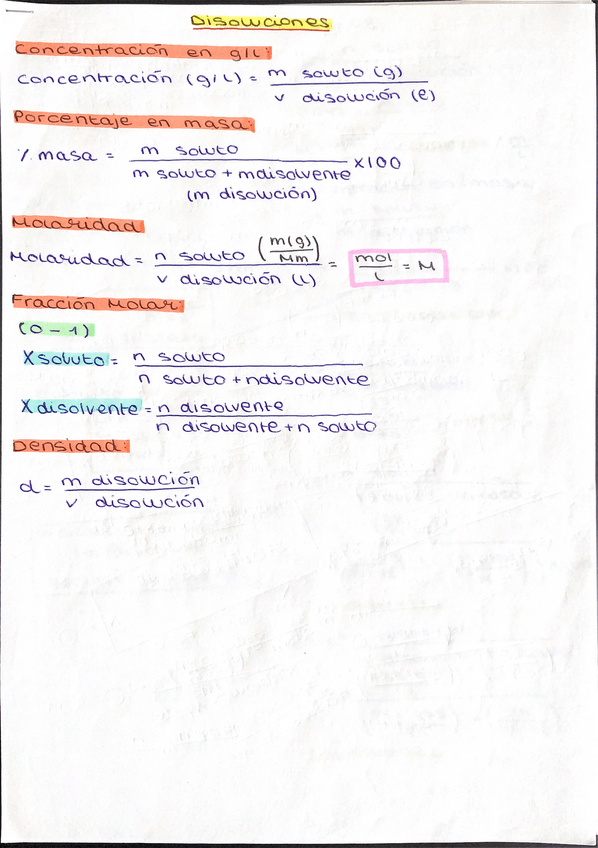 Disoluciones
Concentración en g/L:
Concentración (g/L) = m soluto (g)
v disolución (l)
Porcentaje en masa:
% masa = m soluto x100
m soluto + mdisolvente
(m disolución)
Molaridad
Molaridad = n soluto (m(g)/Mm) = mol/L = M
v disolución (L)
Fracción Molar:
(0 - 1)
X soluto = n soluto
n soluto + ndisolvente
X disolvente = n disolvente
n disolvente + n soluto
Densidad:
d = m disolución
v disolución